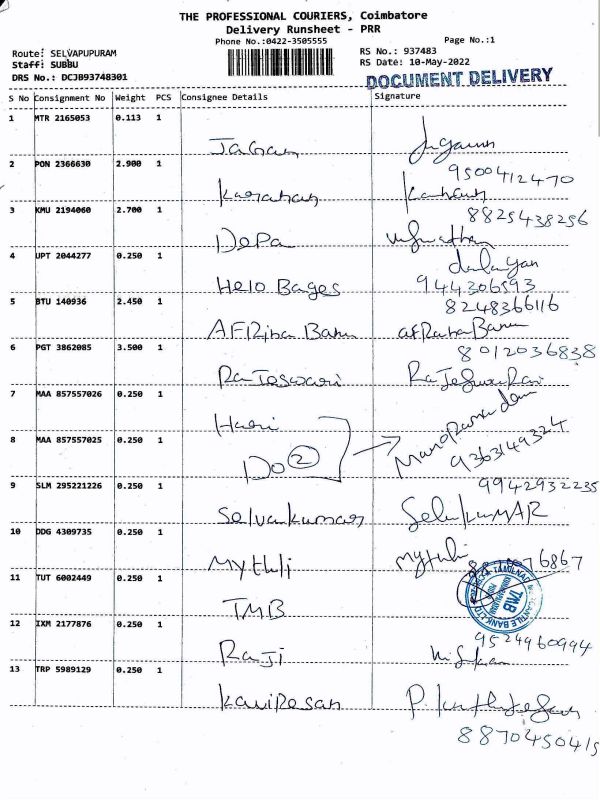 THE PROFESSIONAL COURIERS, Coimbatore
Delivery Runsheet - PRR
Phone No.:0422-3505555
Page No.:1
Route: SELVAPUPURAM
Staff: SUBBU
DRS No.: DCJB93748301
RS No.: 937483
RS Date: 10-May-2022
DOCUMENT DELIVERY
S No Consignment No Weight PCS Consignee Details Signature
1 MTR 2165053 0.113 1
Jagan
9500412470
2 PON 2366630 2.900 1
8825438256
3 KMU 2194060 2.700 1
Depa
4 UPT 2044277 0.250 1
Helo Bages
944306593
8248366116
5 BTU 140936 2.450 1
8012036838
6 PGT 3862085 3.500 1
Rajeswari
7 MAA 857557026 0.250 1
Hari
8 MAA 857557025 0.250 1
Do 2
9363149324
9942932235
9 SLM 295221226 0.250 1
Selvakumar SelvakuMAR
10 DDG 4309735 0.250 1
Mythli
6867
11 TUT 6002449 0.250 1
TMB
TMB
9524960994
12 IXM 2177876 0.250 1
Raji
13 TRP 5989129 0.250 1
Kaviresan
8870450415